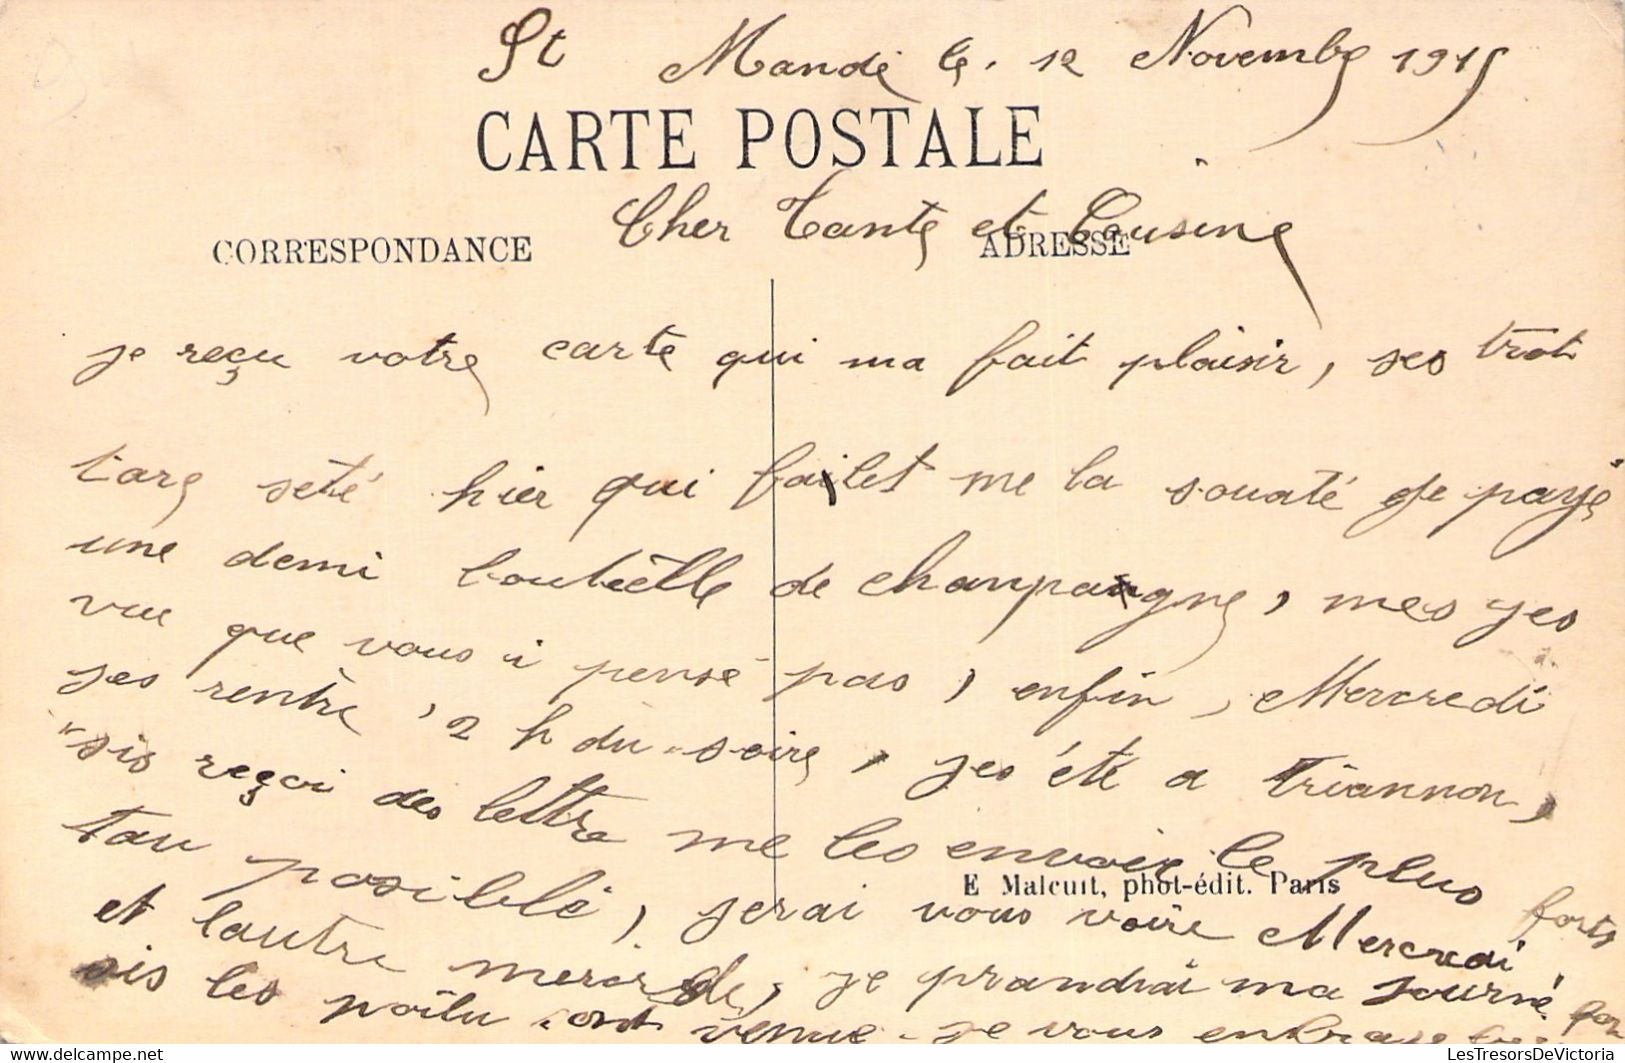 St Mandé le. 12 Novembre 1915
CARTE POSTALE
Cher Tante et Cousine
CORRESPONDANCE
ADRESSE
je reçu votre carte qui ma fait plaisir, ses trot
tare seté hier qui failet me la souaté je paye
une demi bouteille de champagne, mes yes
vue que vous i pensé pas, enfin, Mercredi
jes rentre, 2 h du soire, jes été a Triannon,
sis reçoi des lettre me les envoix le plus
tau posiblé, jerai vous voire Mercredi
E Malcuit, phot-édit. Paris
et lautre je prandrai ma journé
sis les poilu sont venue je vous
forts